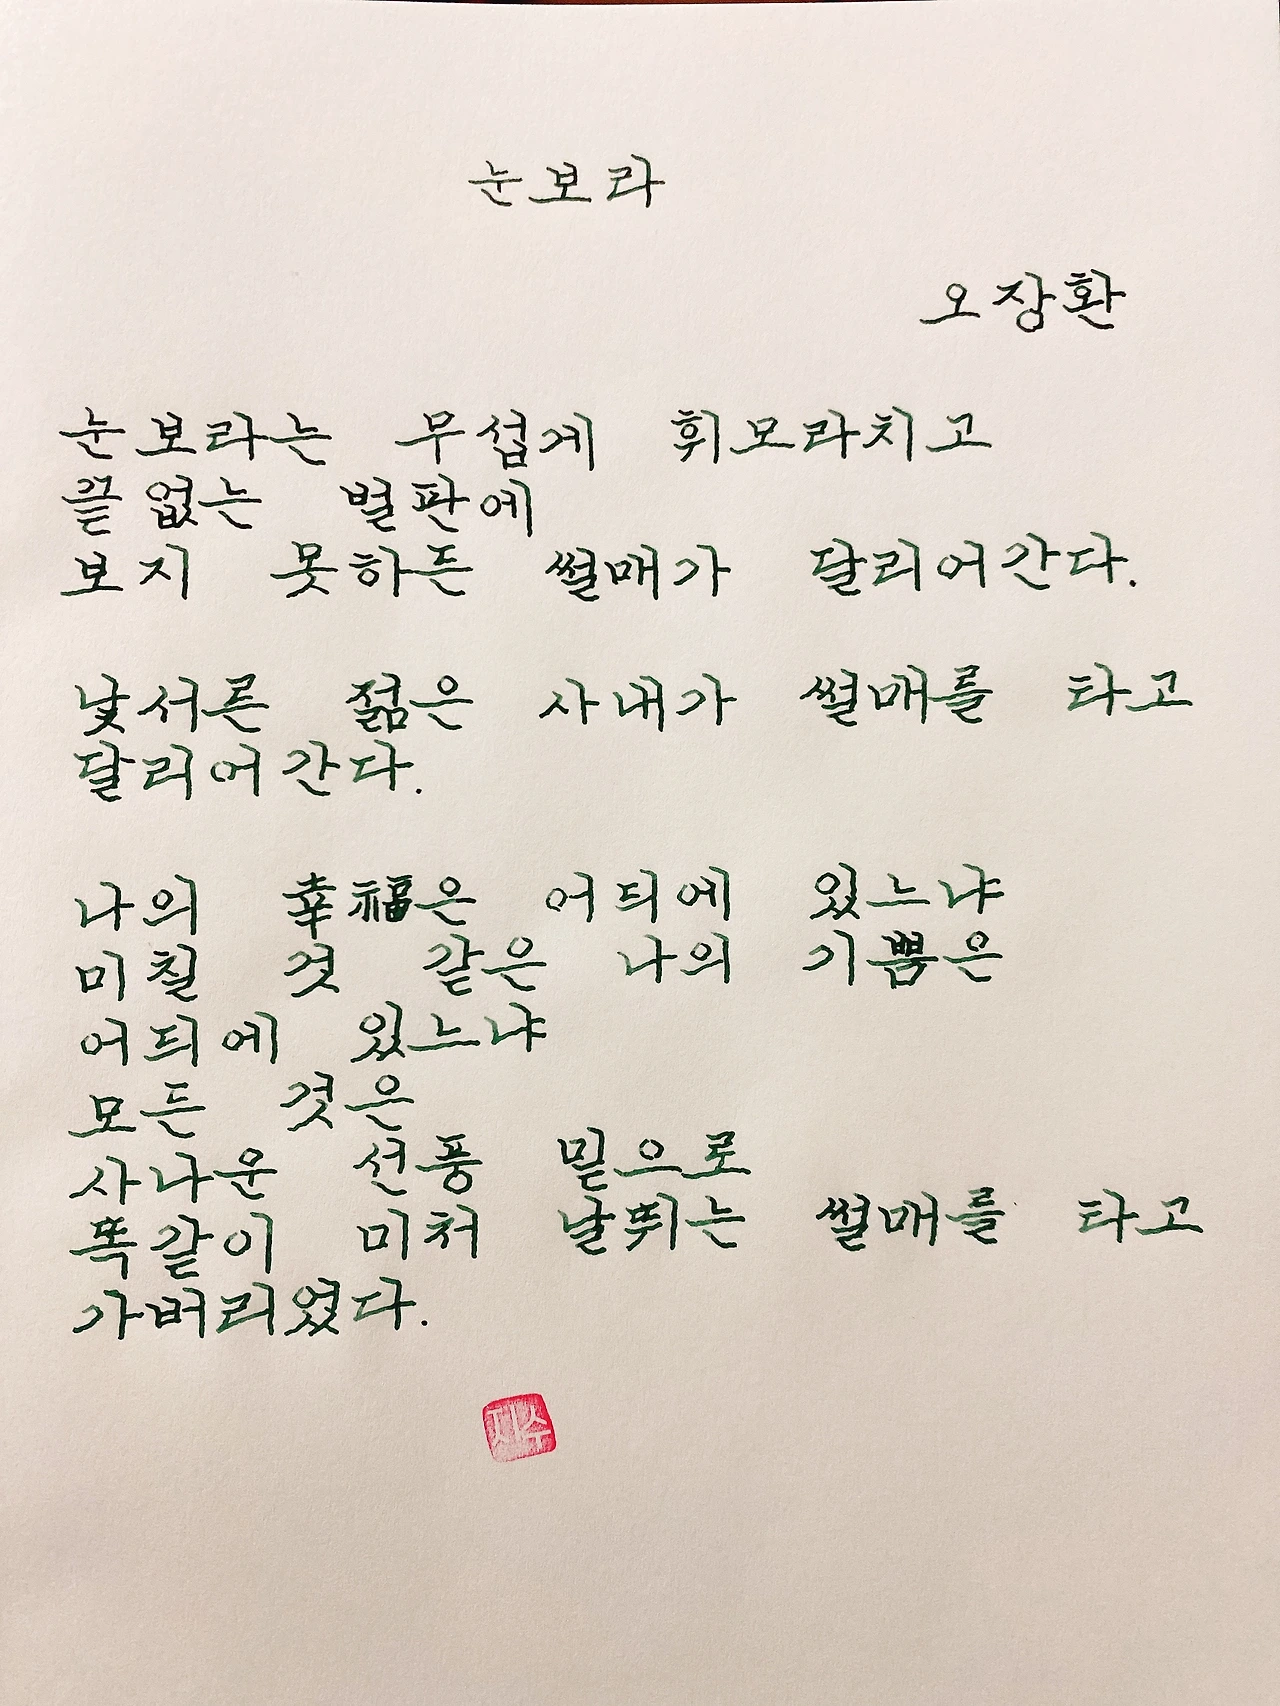 눈보라
오장환
눈보라는 무섭게 휘모라치고
끝없는 벌판에
보지 못하든 썰매가 달리어간다.
낯서른 젊은 사내가 썰매를 타고
달리어간다.
나의 幸福은 어듸에 있느냐
미칠 것 같은 나의 기쁨은
어듸에 있느냐
모든 것은
사나운 선풍 밑으로
똑같이 미처 날뛰는 썰매를 타고
가버리였다.
지수